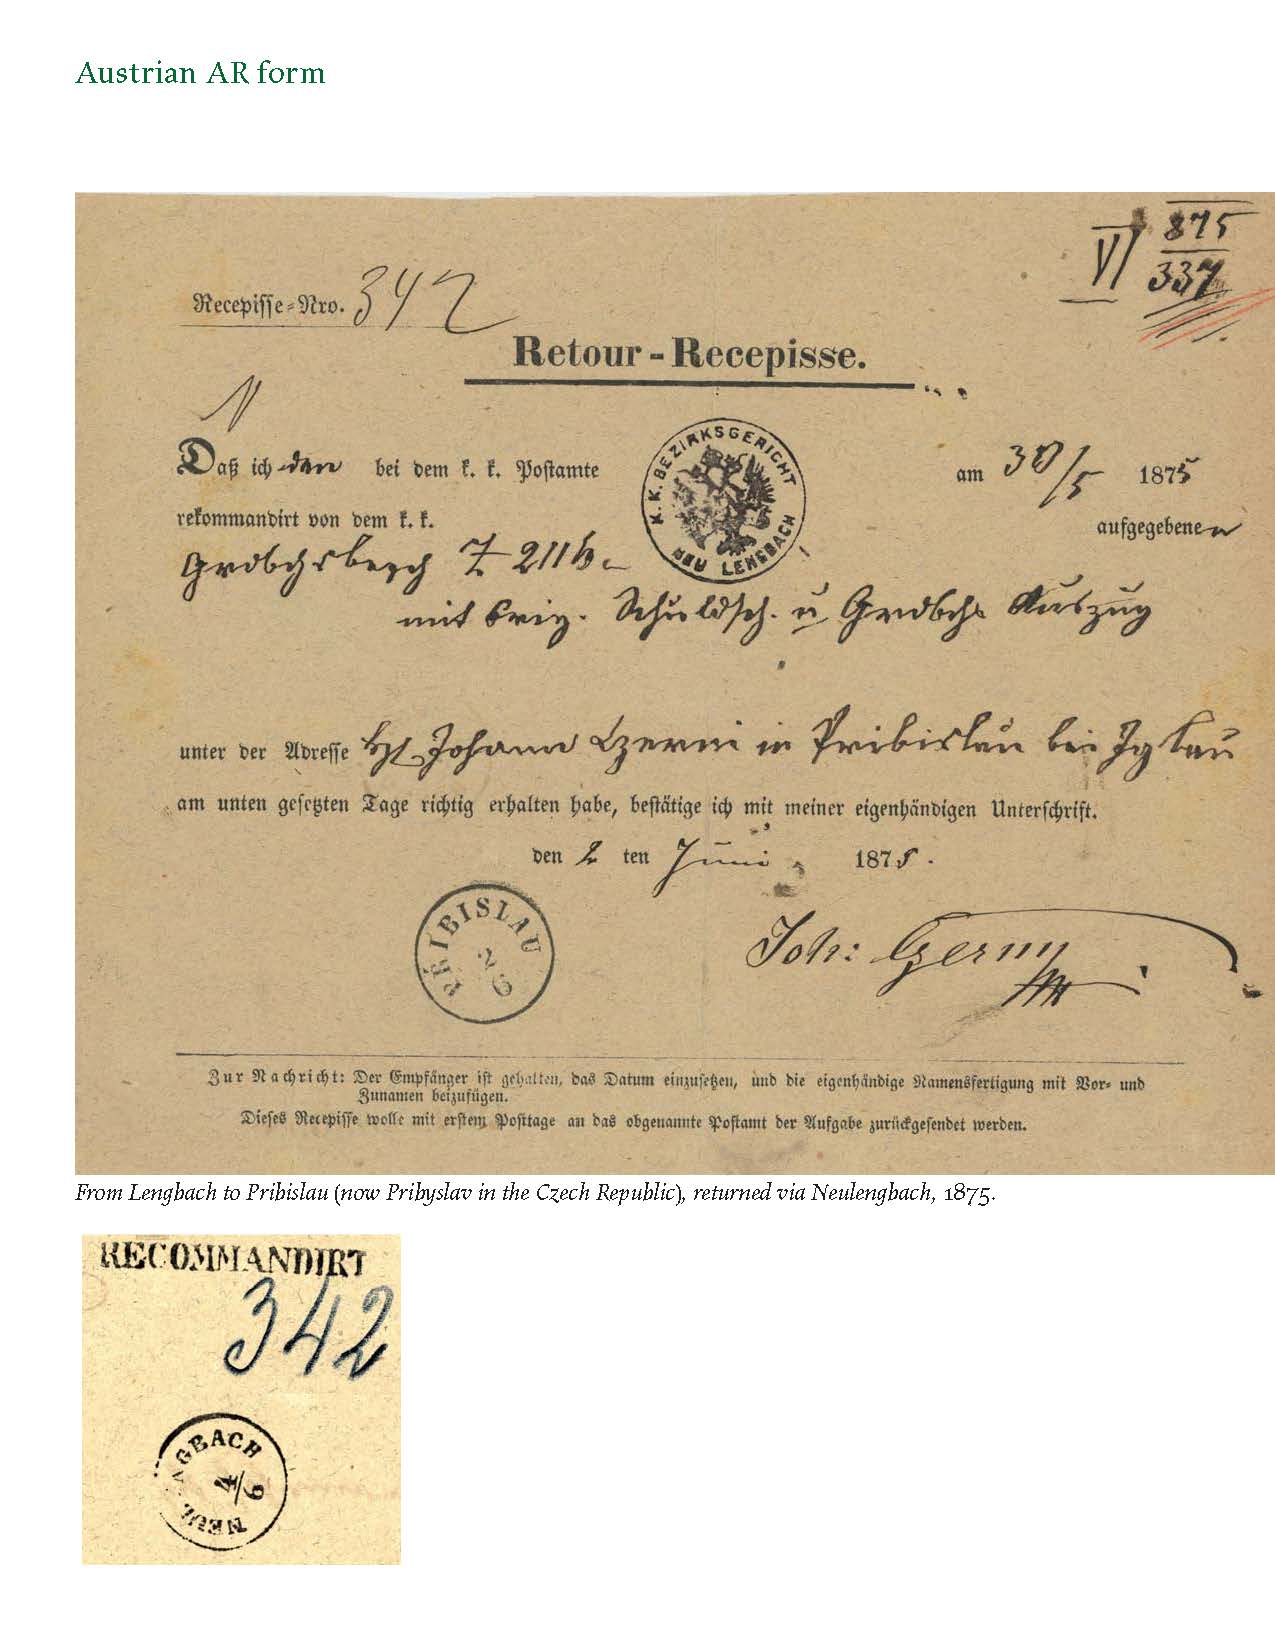 Austrian AR form
VI 875
337
Recepisse-Nro. 342
Retour-Recepisse.
Daß ich den bei dem k. k. Postamte
K.K. BEZIRKSGERICHT NEU LENGBACH
am 30/5 1875
rekommandirt von dem k. k.
aufgegebenen
Grdbchsbesch Z 2116
mit Orig. Schuldsch. u Grdbchs Auszug
unter der Adresse H Johann Czerni in Pribislau bei Iglau
am unten gesetzten Tage richtig erhalten habe, bestätige ich mit meiner eigenhändigen Unterschrift.
den 2 ten Juni 1875.
PŘIBISLAU
2
6
Joh: Czerny
Zur Nachricht: Der Empfänger ist gehalten, das Datum einzusetzen, und die eigenhändige Namensfertigung mit Vor- und
Zunamen beizufügen.
Dieses Recepisse wolle mit erstem Posttage an das obgenannte Postamt der Aufgabe zurückgesendet werden.
From Lengbach to Pribislau (now Pribyslav in the Czech Republic), returned via Neulengbach, 1875.
RECOMMANDIRT
342
NEUL GBACH
4/6